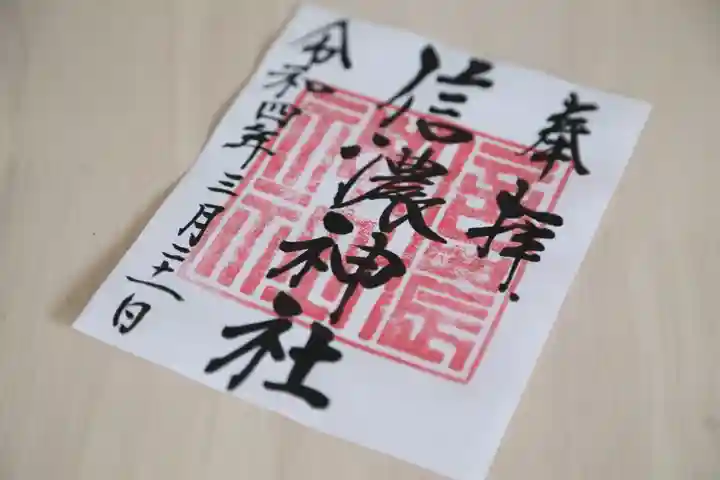 奉拝
信濃神社
令和四年三月二十一日